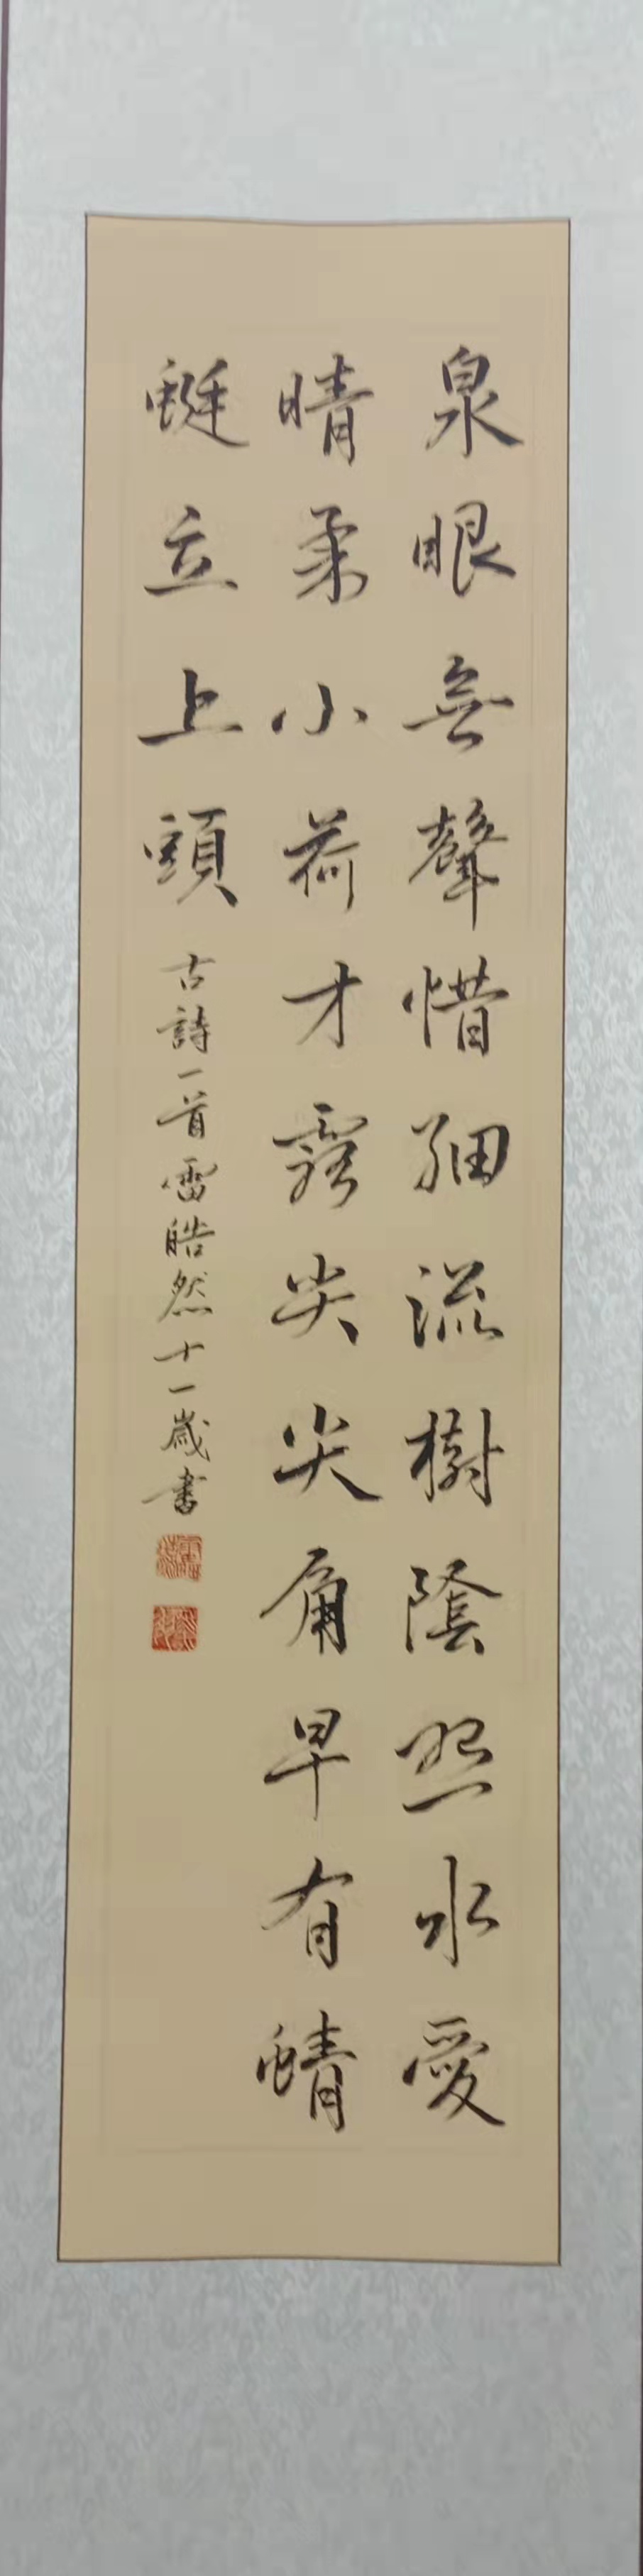 泉眼無聲惜細流樹陰照水愛
晴柔小荷才露尖尖角早有蜻
蜓立上頭
古詩一首雷皓然十一歲書